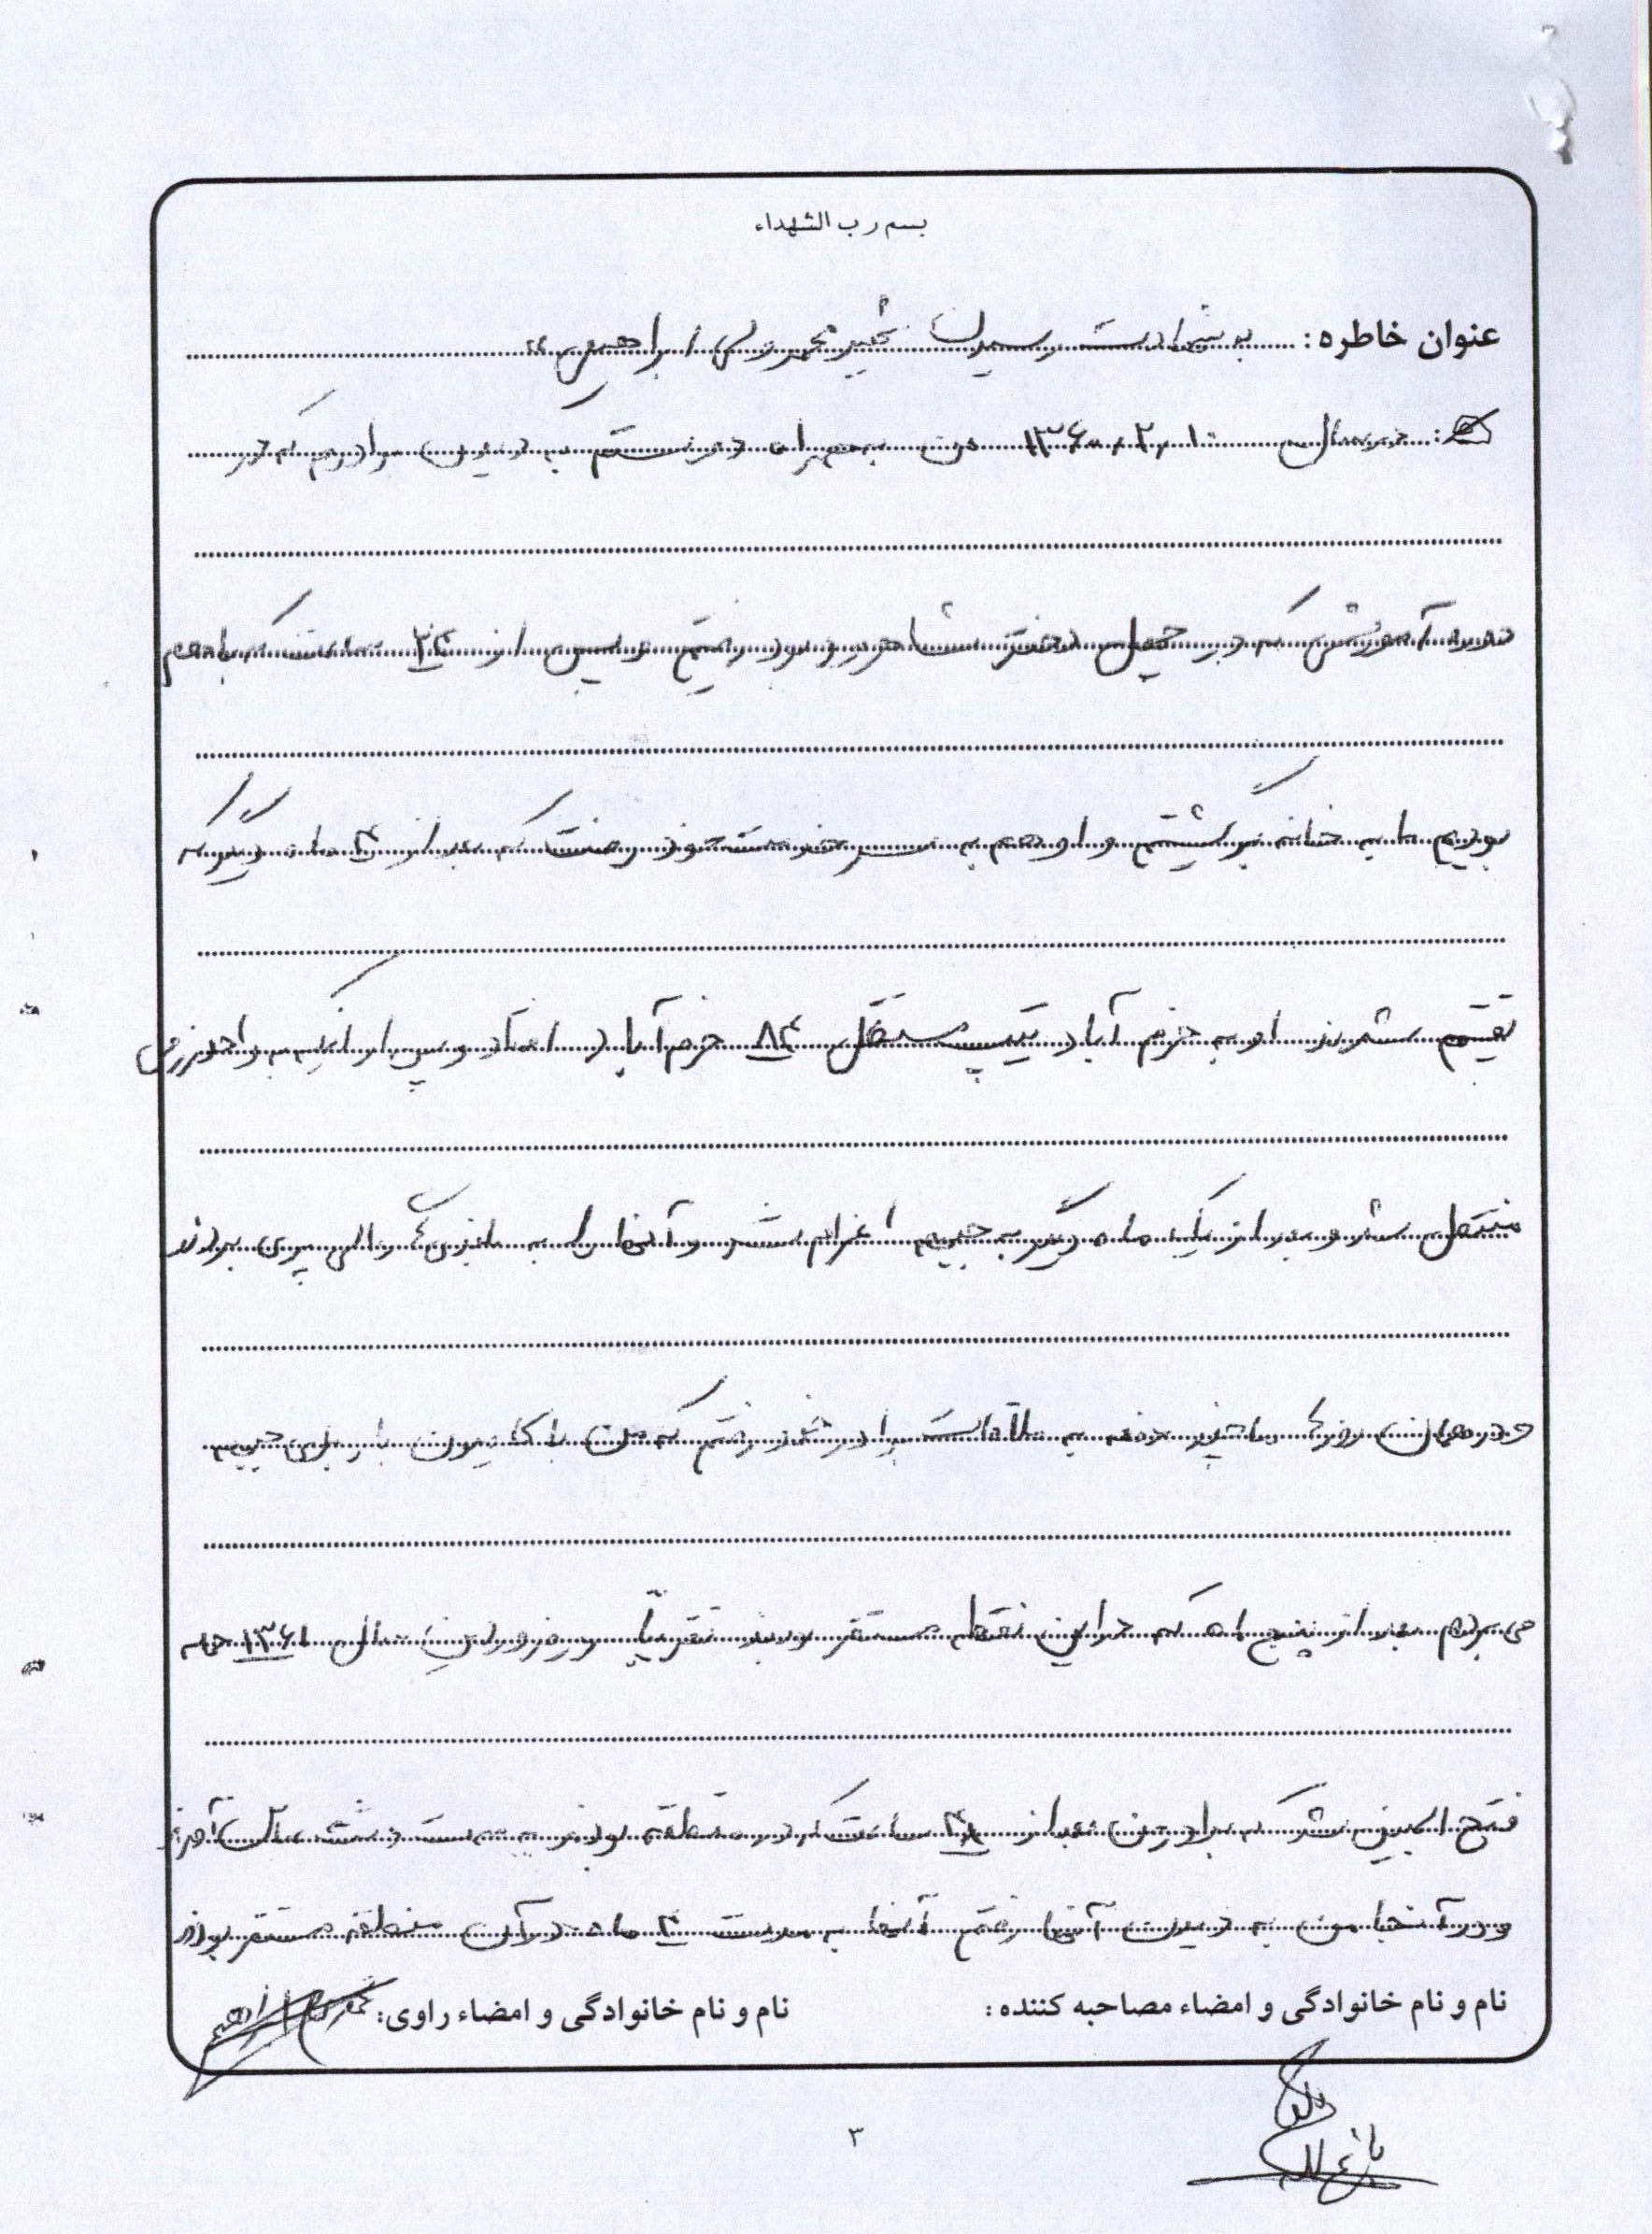 بسم رب الشهداء
عنوان خاطره: به شهادت رسیدن شهید محمد ولی ابراهیمی
در سال ۱۳۶۰/۲/۱۰ من به همراه دوستم به دیدن برادرم که در
دوره آموزشی که در چهل دختر شاهرود بود رفتم و پس از ۲۴ ساعت که با هم
بودیم ما به خانه برگشتیم و او هم به سر خدمت خود رفت که بعد از ۲ ماه دیگر که
تقسیم شدند او به خرم آباد تیپ مستقل ۸۴ خرم آباد افتاد و پس از اینکه به واحد رزمی
منتقل شد و بعد از یک ماه دیگر به جبهه اعزام شد و آنها را به بردند
و در همان روزها چند دفعه به ملاقات برادر خود رفتم که من با کامیون بار برای جبهه
می بردم بعد از پنج ماه که در این نقطه مستقر بودند تقریباً فروردین سال ۱۳۶۱ حمله
فتح المبین شد که برادر من بعد از ۴۸ ساعت که در منطقه بودند به دشت
و در آنجا من به دیدن آنها رفتم آنها به مدت ۲ ماه در آن منطقه مستقر بودند
نام و نام خانوادگی و امضاء مصاحبه کننده: نام و نام خانوادگی و امضاء راوی:
۳